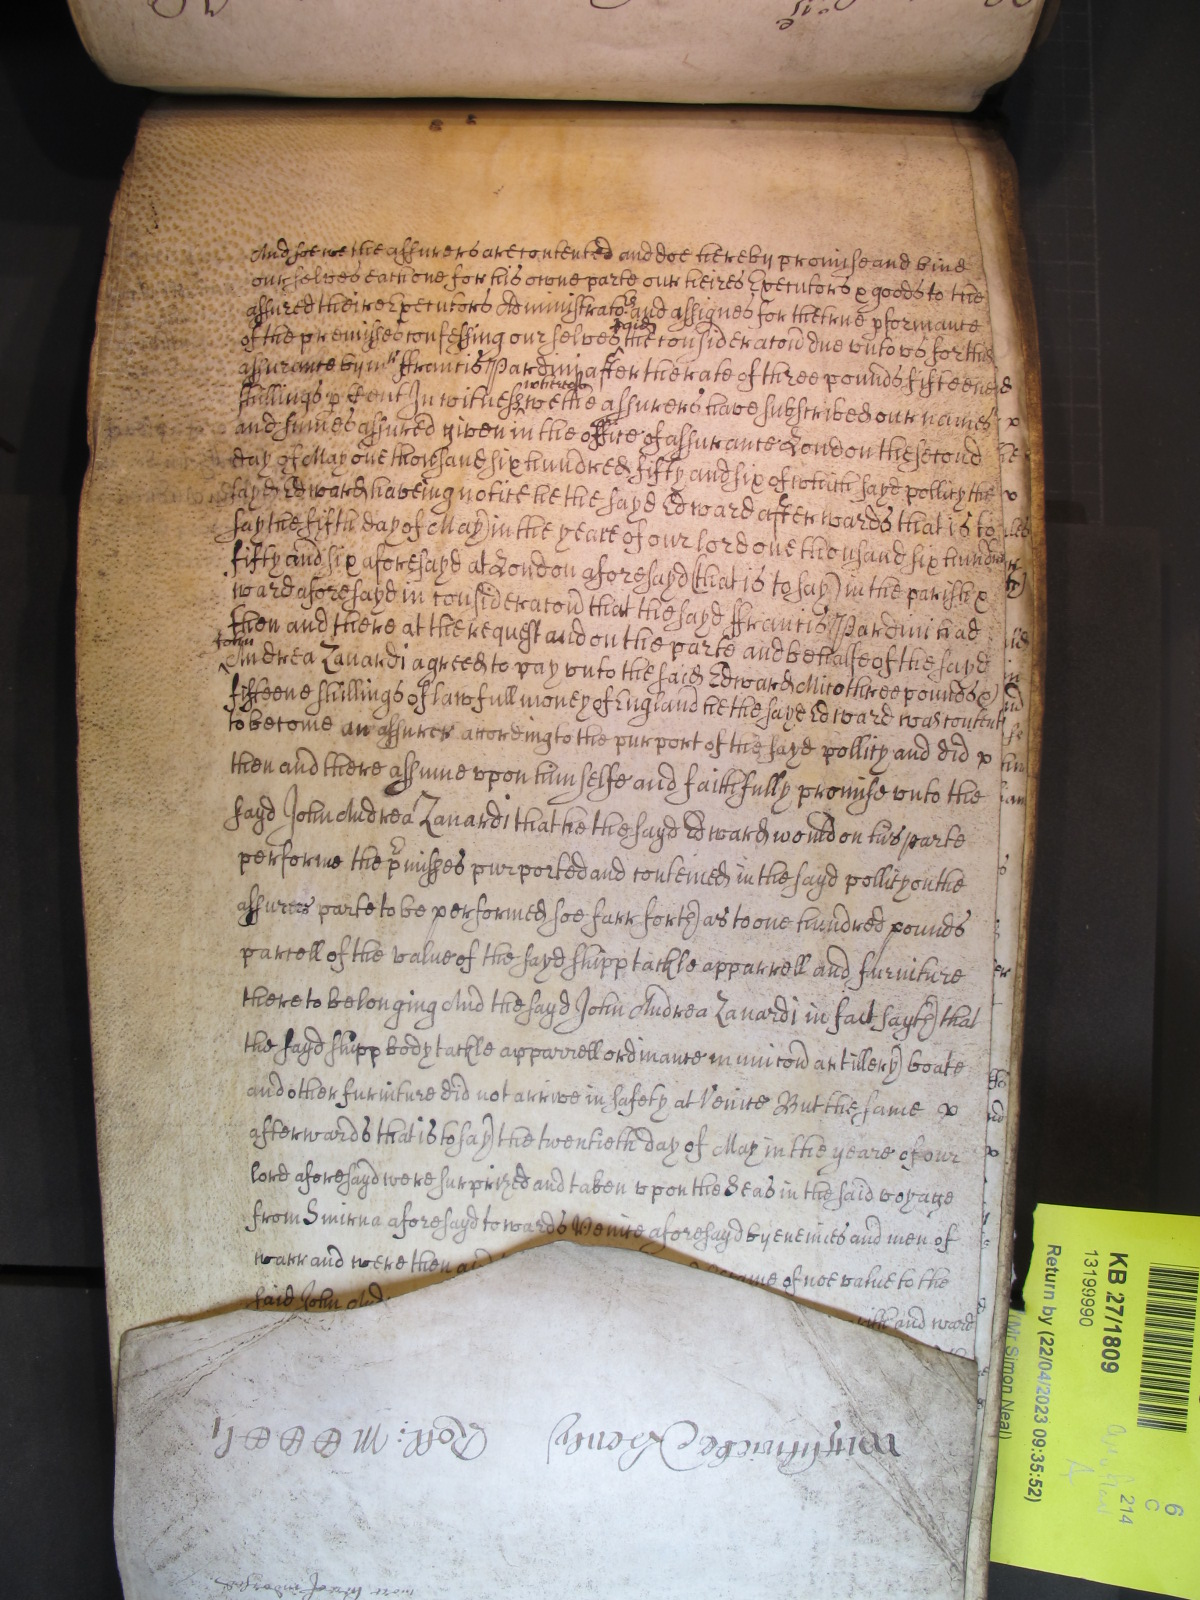 And soe we the assurers are contented and doe hereby promise and bind
ourselves each one for his owne parte our heires Executors & goods to the
assured their Executors Administrators and assignes for the true pformance
of the premisses confessing ourselves paid the consideracon due unto us for this
assurance by mr ffrancis Pardini after the rate of three pounds fifteene
shillings p Cent In witness whereof we the assurers have subscribed our names
and summes assured given in the office of assurance London the second
day of May one thousand six hundred fifty and six of which sayd pollicy the
sayd Edward haveing notice he the sayd Edward afterwards that is to
say the fifth day of May in the yeare of our lord one thousand six hundred
fifty and six aforesayd at London aforesayd (that is to say) in the parish &
ward aforesayd in consideracon that the sayd ffrancis Pardini had
then and there at the request and on the parte and behalfe of the sayd
John Andrea Zanardi agreed to pay unto the said Edward Mico three pounds &
fifteene shillings of lawfull money of England he the sayd Edward was content
to become an assurer according to the purport of the sayd pollicy and did
then and there assume upon himselfe and faithfully promise unto the
sayd John Andrea Zanardi that he the sayd Edward would on his parte
performe the pmisses purported and conteined in the sayd pollicy on the
assurers parte to be performed soe farr forth as to one hundred pounds
parcell of the value of the sayd shipp tackle apparrell and furniture
thereto belonging And the sayd John Andrea Zanardi in fact sayth that
the sayd shipp body tackle apparrell ordinance municon artillery boate
and other furniture did not arrive in safety at Venice But the same
afterwards that is to say the twentieth day of May in the yeare of our
lord aforesayd were surprized and taken upon the Seas in the said voyage
from Smirna aforesayd towards Venice aforesayd by enemies and men of
warr and were then and became of noe value to the
said John And
and ward
KB 27/1809
13199990
Return by (22/04/2023 09:35:52)
(Mr Simon Neal)
6
C
214